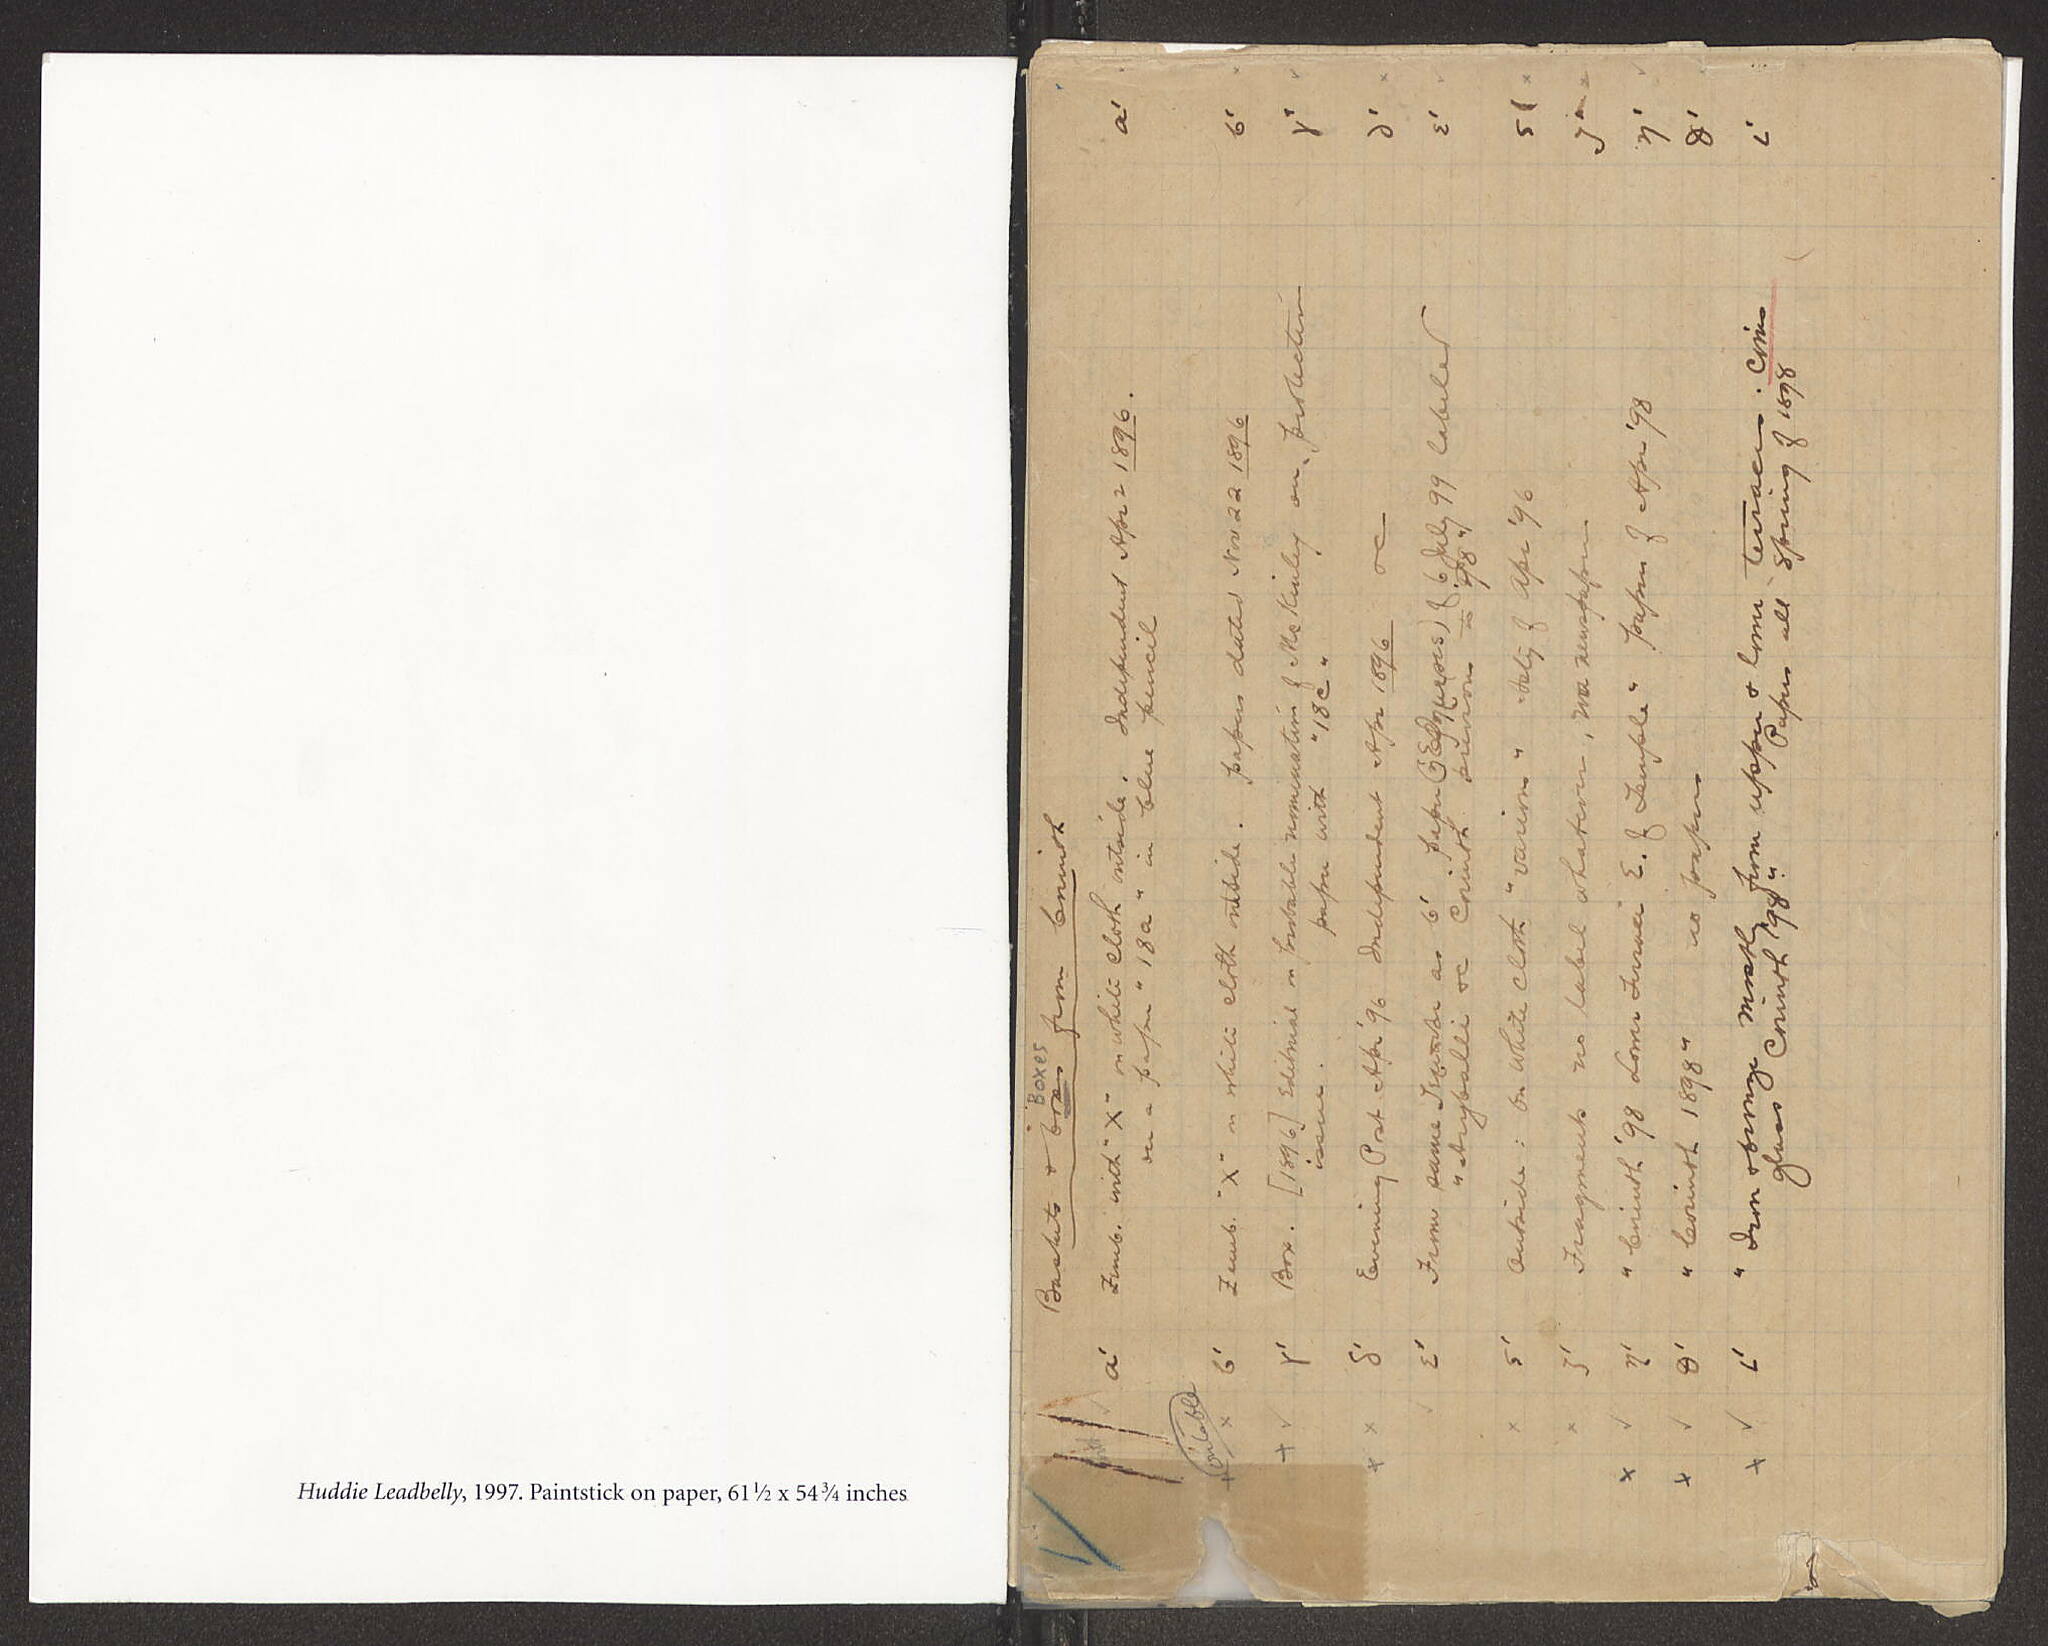 Huddie Leadbelly, 1997. Paintstick on paper, 61½ x 54¾ inches
Boxes
Baskets & boxes from Corinth
α' Zemb. with "X" on white cloth outside. Independent Apr 2 1896. α'
on a paper "18a" in blue pencil
on table
ϐ' Zemb. "X" on white cloth outside. papers dated Nov 22 1896 ϐ'
γ' Box. [1896] Editorial on probable nomination of McKinley on protection γ'
issue. paper with "18c"
δ' Evening Post Apr '96 Independent Apr 1896 δ'
ε' From same as ϐ' paper of 6 July 99 labeled ε'
"Aryballi Corinth 98"
ς' Outside: on white cloth "various" of Apr '96 ς'
ζ' Fragments no label whatever, no newspaper ζ'
η' "Corinth '98 Lower E. of Temple" papers of Apr '98 η'
θ' "Corinth 1898" no papers θ'
ι' "Iron & bronze mostly from upper & lower terraces. Coins ι'
glass Corinth '98". Papers all Spring of 1898